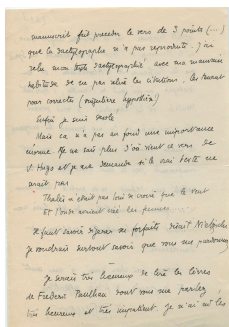 manuscrit fait précéder le vers de 3 points (...)
que la dactylographe n'a pas reproduits. J'ai
relu mon texte dactylographié avec ma mauvaise
habitude de ne pas relire les citations, les tenant
pour correctes (singulière hypothèse)
Enfin je suis désolé
Mais ca n'a pas au fond une importance
énorme. Je ne sais plus d'où vient ce vers de
V. Hugo et je me demande si le vrai texte ne
serait pas
Thalès n'était pas loin de croire que le vent
Et l'onde avaient créé les femmes
Il faut savoir digérer ses forfaits disait Nietzsche
je voudrais surtout savoir que vous me pardonnez
Je serais très heureux de lire les livres
de Frédéric Paulhan dont vous me parlez,
très heureux et très impatient. Je n'ai lu les